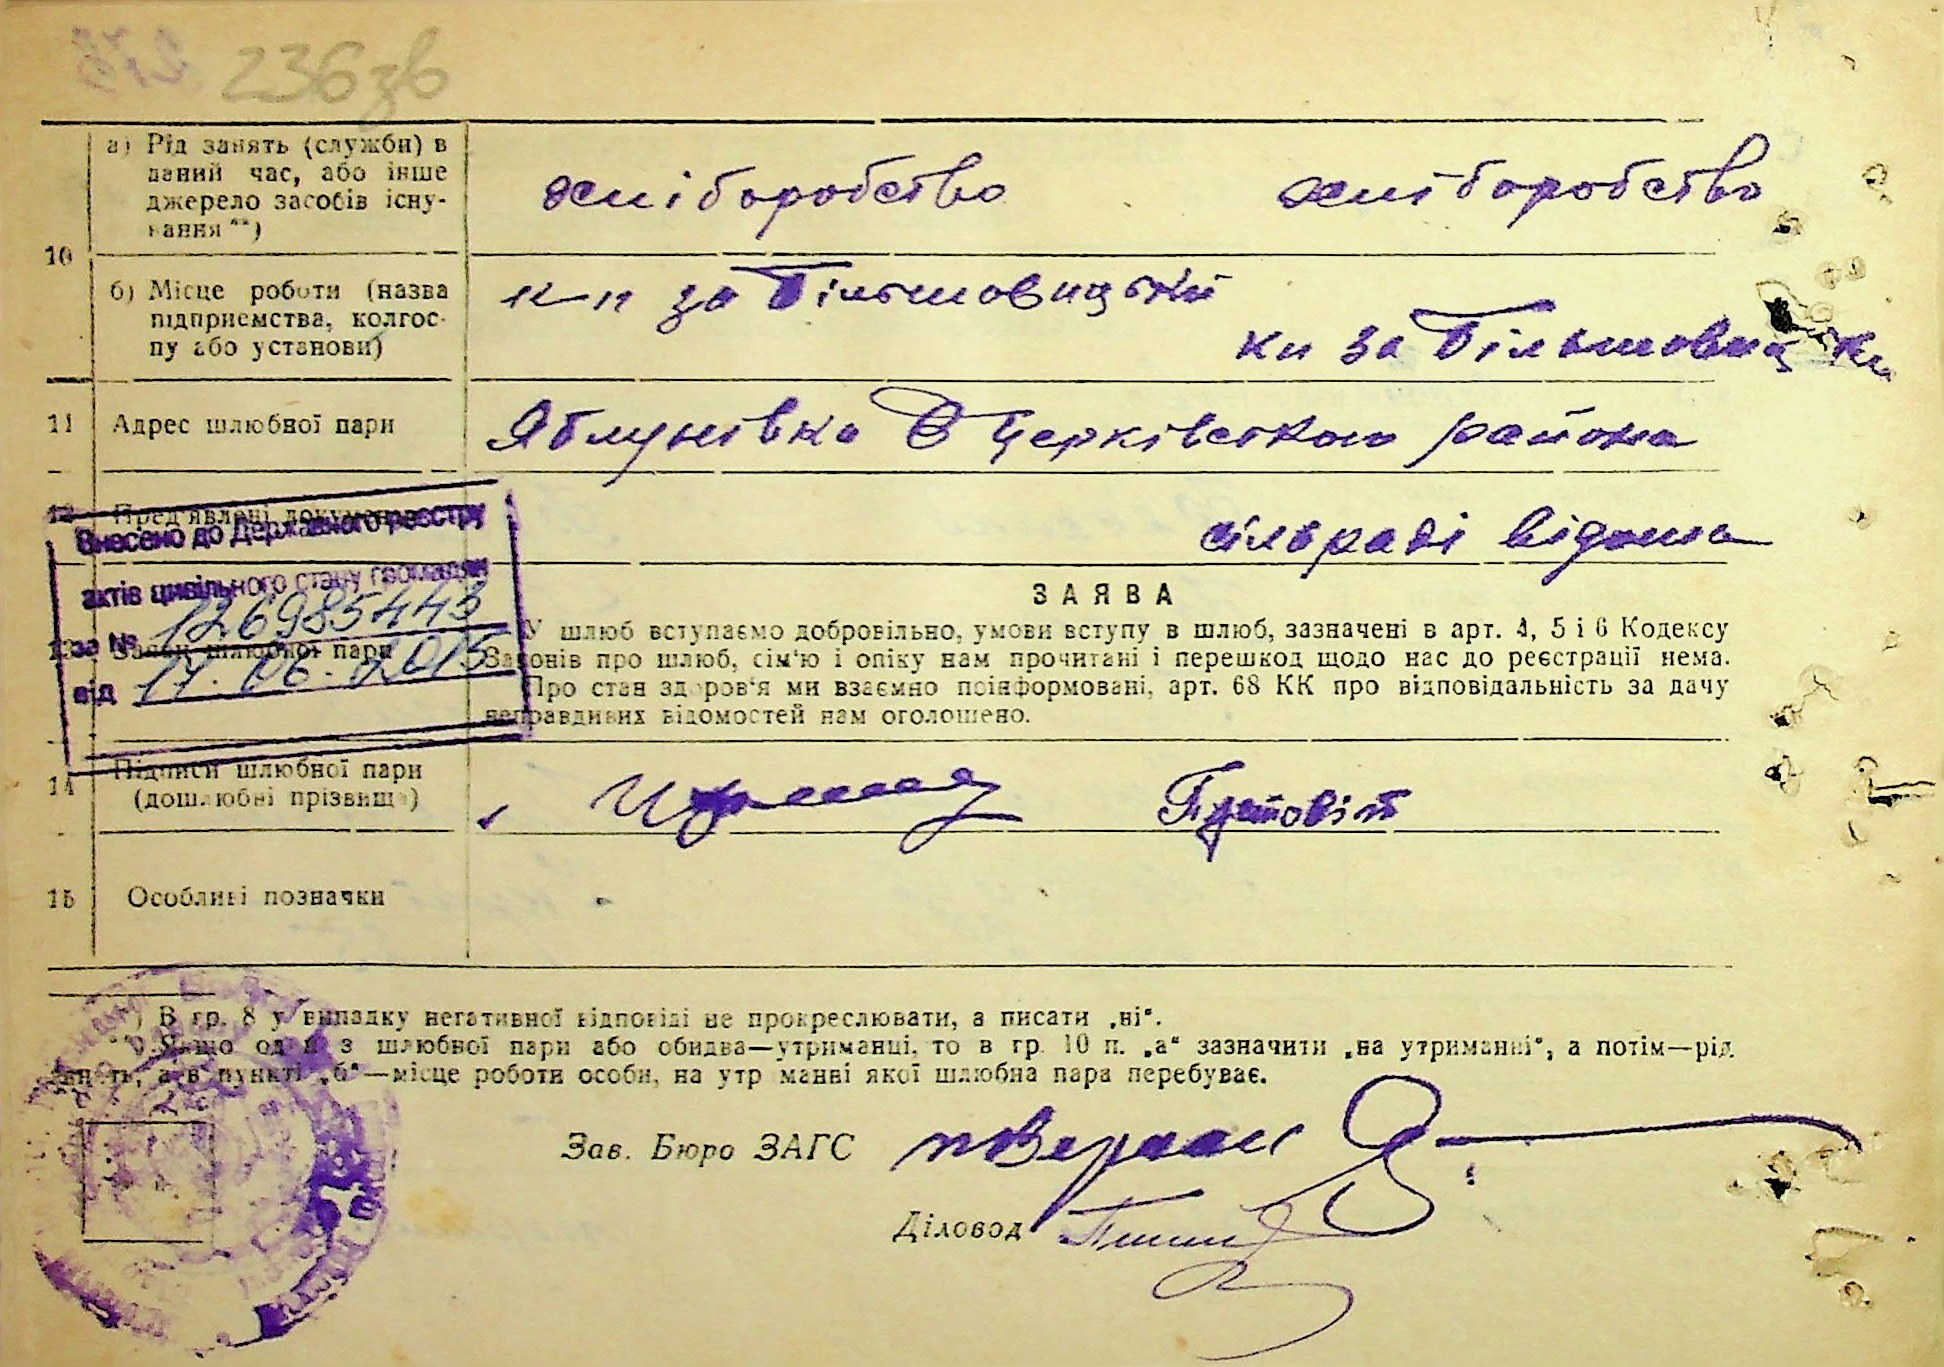 236 зв
10
а) Рід занять (служби) в
даний час, або інше
джерело засобів існу-
вання **)
хліборобство хліборобство
б) Місце роботи (назва
підприємства, колгос-
пу або установи)
к-п за Більшовицький
кп за Більшовицьки
11 Адрес шлюбної пари
Яблунівка Б Церківського района
12 Пред'явлені документи
сільраді відома
Внесено до Державного реєстру
актів цивільного стану громадян
за № 126985443
від 17.06.2015
13 Заява шлюбної пари
ЗАЯВА
У шлюб вступаємо добровільно, умови вступу в шлюб, зазначені в арт. 4, 5 і 6 Кодексу
Законів про шлюб, сім'ю і опіку нам прочитані і перешкод щодо нас до реєстрації нема.
Про стан здоров'я ми взаємно поінформовані, арт. 68 КК про відповідальність за дачу
неправдивих відомостей нам оголошено.
14 Підписи шлюбної пари
(дошлюбні прізвища)
15 Особливі позначки
*) В гр. 8 у випадку негативної відповіді не прокреслювати, а писати „ні“.
**) Якщо один з шлюбної пари або обидва—утриманці, то в гр. 10 п. „а“ зазначити „на утриманні“, а потім—рід
занять, а в пункті „б“—місце роботи особи, на утриманні якої шлюбна пара перебуває.
Зав. Бюро ЗАГС
Діловод